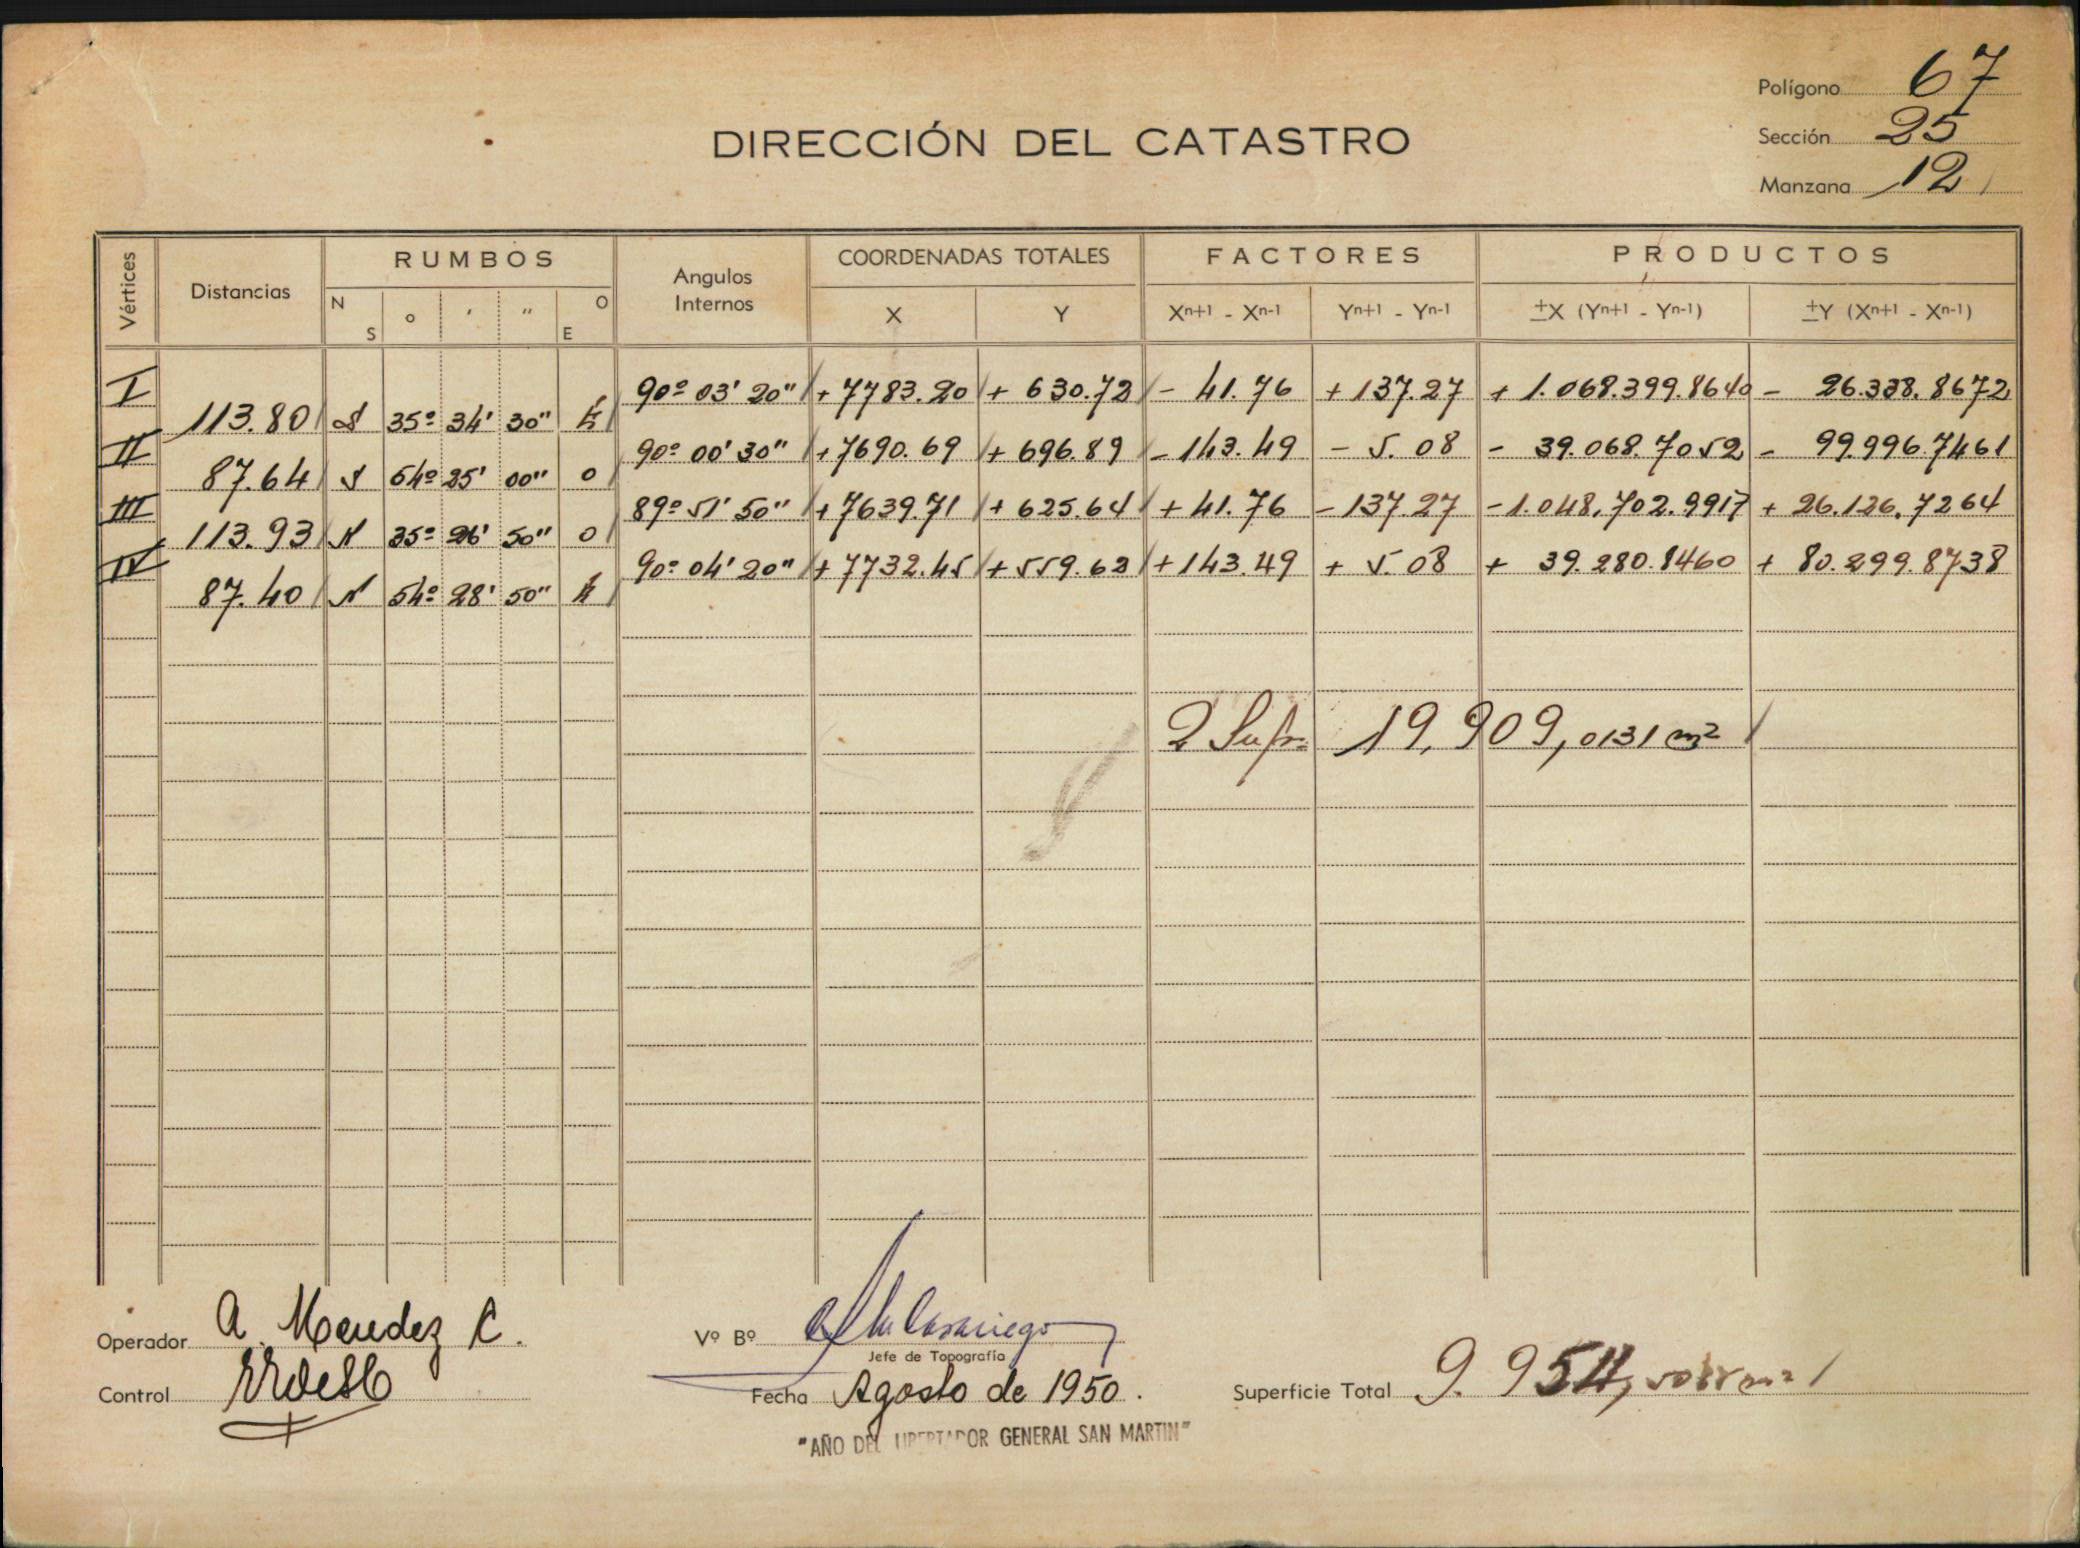 Polígono 67
Sección 25
Manzana 12
DIRECCIÓN DEL CATASTRO
Vértices Distancias RUMBOS Angulos Internos COORDENADAS TOTALES FACTORES PRODUCTOS
N S ° ' " O E X Y Xn+1 - Xn-1 Yn+1 - Yn-1 ±X (Yn+1 - Yn-1) ±Y (Xn+1 - Xn-1)
I 90º 03' 20" + 7783.20 + 630.72 - 41.76 + 137.27 + 1.068.399.8640 - 26.338.8672
113.80 S 35º 34' 30" E
II 90º 00' 30" + 7690.69 + 696.89 - 143.49 - 5.08 - 39.068.7052 - 99.996.7461
87.64 S 54º 25' 00" O
III 89º 51' 50" + 7639.71 + 625.64 + 41.76 - 137.27 - 1.048.702.9917 + 26.126.7264
113.93 N 35º 26' 50" O
IV 90º 04' 20" + 7732.45 + 559.62 + 143.49 + 5.08 + 39.280.8460 + 80.299.8738
87.40 N 54º 28' 50" E
2 Sup. 19.909,0131 m²
Operador A. Mendez C.
Vº Bº
Jefe de Topografía
Control
Fecha Agosto de 1950.
Superficie Total 9.954,5065 m²
"AÑO DEL LIBERTADOR GENERAL SAN MARTIN"